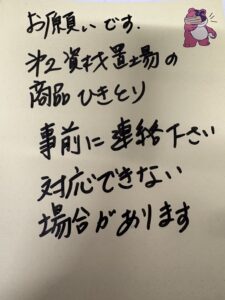 お願いです.
第2資材置場の
商品ひきとり
事前に連絡下さい
対応できない
場合があります